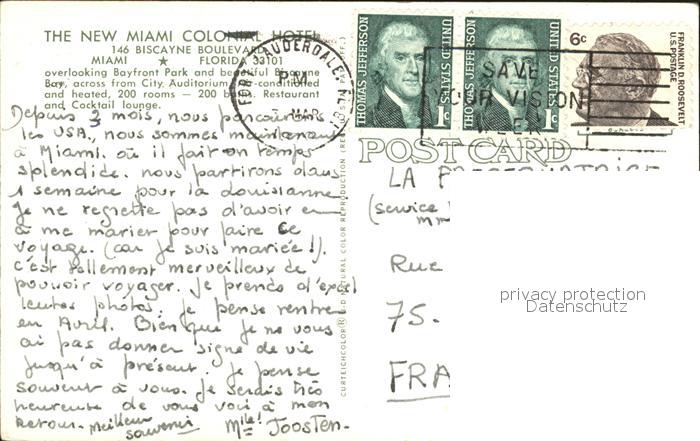 THE NEW MIAMI COLONIAL HOTEL
146 BISCAYNE BOULEVARD
MIAMI ★ FLORIDA 33101
overlooking Bayfront Park and beautiful Biscayne
Bay, across from City Auditorium. Air-conditioned
and heated, 200 rooms — 200 baths. Restaurant
and Cocktail lounge.
Depuis 3 mois, nous parcourons
les USA, nous sommes maintenant
à Miami. où il fait un temps
splendide. nous partirons dans
1 semaine pour la Louisianne
Je ne regrette pas d'avoir eu
à me marier pour faire ce
voyage. (car je suis mariée !).
c'est tellement merveilleux de
pouvoir voyager. Je prends d'excel
lentes photos. je pense rentrer
en Avril. Bien que je ne vous
ai pas donner signe de vie
jusqu'à présent. Je pense
souvent à vous. Je serais très
heureuse de vous voir à mon
retour. Meilleur
souvenir Mlle! Joosten.
CURTEICHCOLOR® 3-D NATURAL COLOR REPRODUCTION
FORT LAUDERDALE
PM
SAVE
YOUR VISION
WEEK
THOMAS JEFFERSON
1c
UNITED STATES
THOMAS JEFFERSON
1c
UNITED STATES
6c
FRANKLIN D. ROOSEVELT
U.S. POSTAGE
POST CARD
LA P
(Service
Rue
75.
FRA
privacy protection
Datenschutz